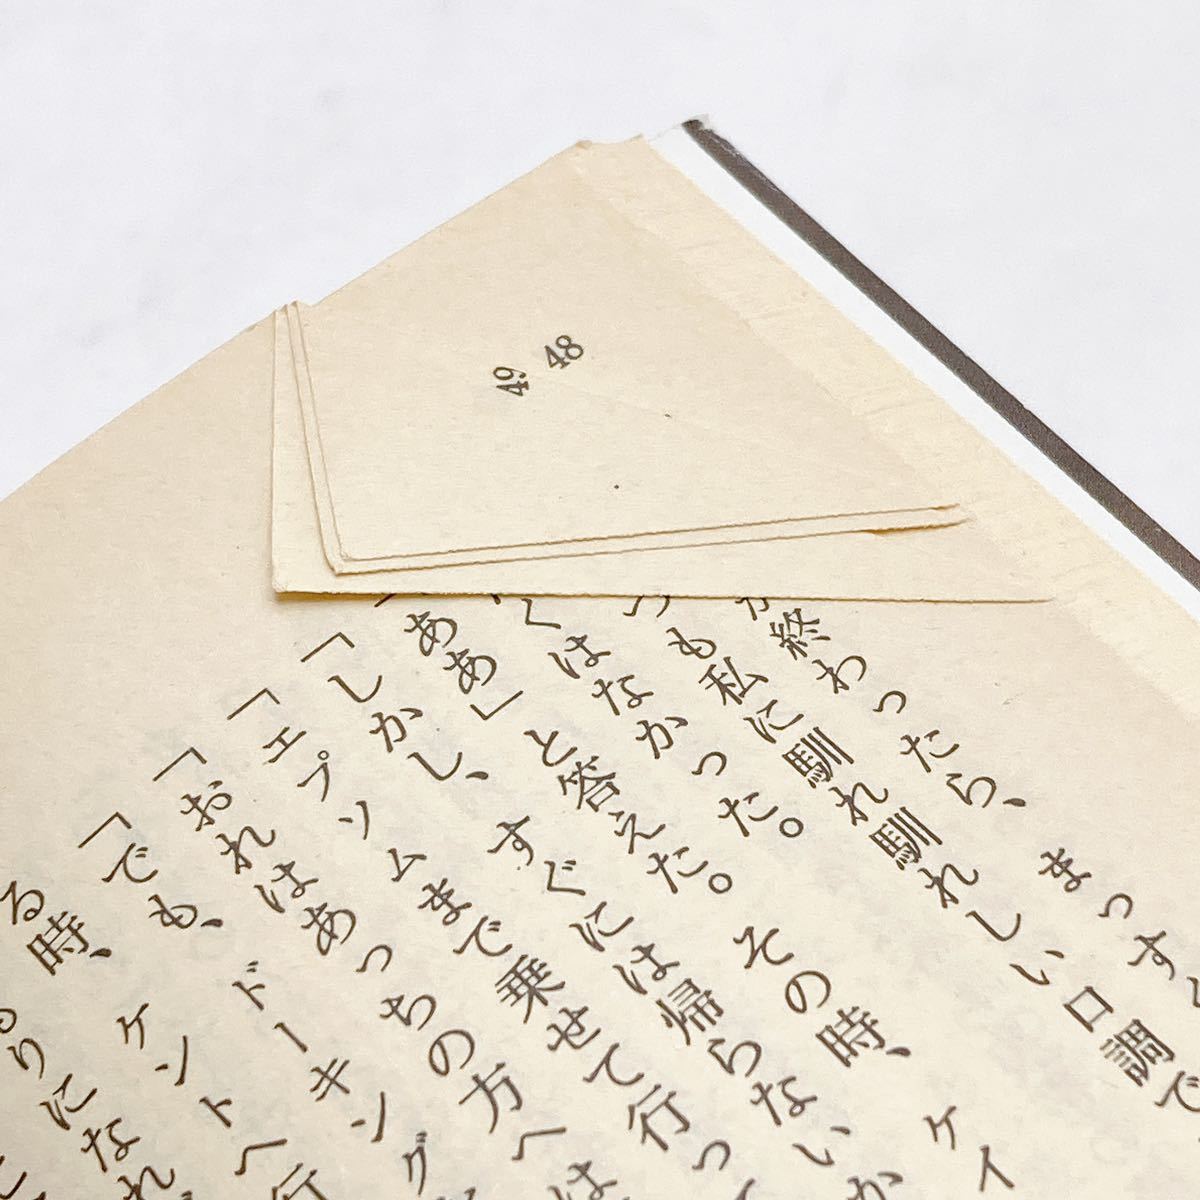 49 48
が終わったら、まっすぐ
つも私に馴れ馴れしい口調で
くはなかった。
「ああ」と答えた。その時、ケイ
「しかし、すぐには帰らない
「エプソムまで乗せて行って
「おれはあっちの方へは
「でも、ドーキング
る時、ケントへ行
りになれ